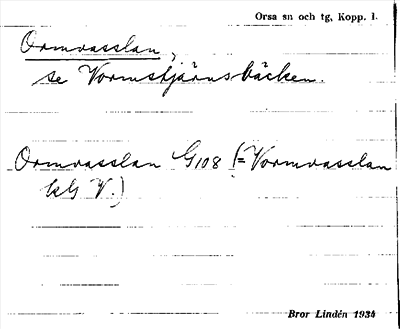 Orsa sn och tg, Kopp. l.
Ormvasslan,
se Vormstjärnsbäcken.
Ormvasslan G108 (= Vormvasslan
V.)
Bror Lindén 1934